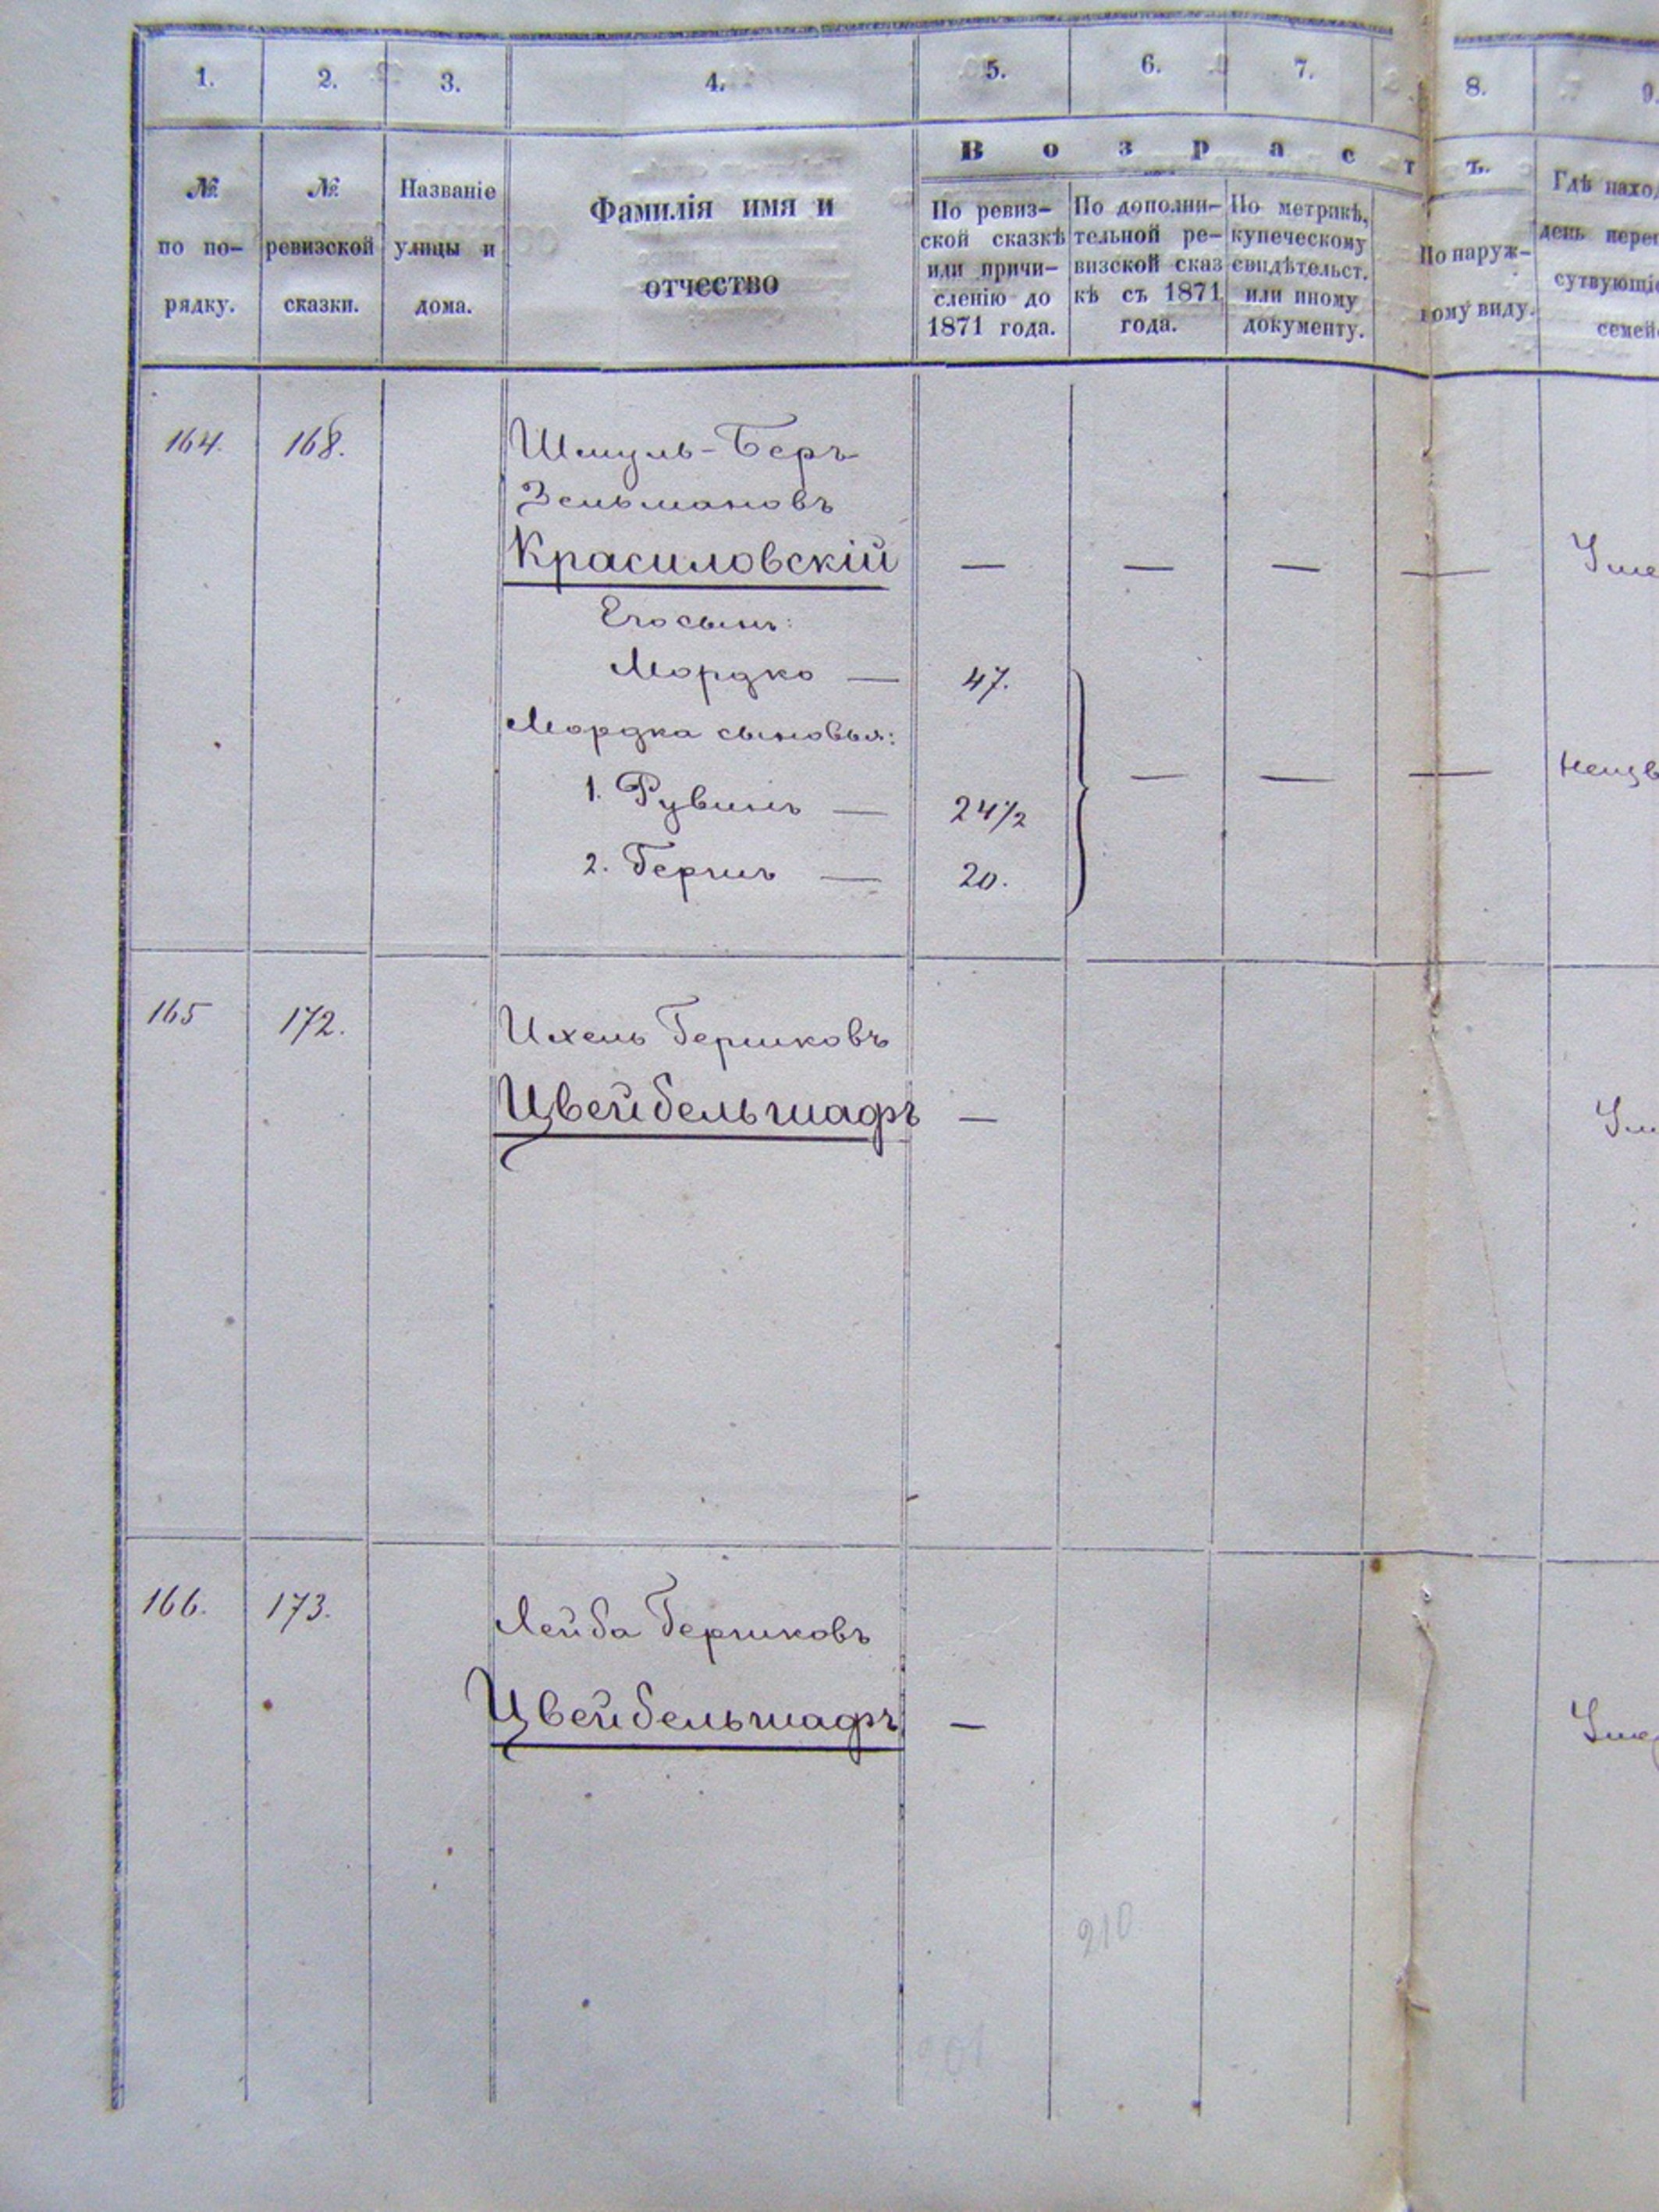 1. 2. 3. 4. 5. 6. 7. 8. 9.
В о з р а с т ъ.
№
по по-
рядку.
№
ревизской
сказки.
Названіе
улицы и
дома.
Фамилія имя и
отчество
По ревиз-
ской сказкѣ
или причи-
сленію до
1871 года.
По дополни-
тельной ре-
визской сказ
кѣ съ 1871
года.
По метрикѣ,
купеческому
свидѣтельст.
или иному
документу.
По наруж-
ному виду.
Гдѣ наход
день переп
сутвующіе
семей
164. 168. Шмуль-Беръ
Зельмановъ
Красиловскій — — — — Уме
Его сынъ:
Мордко — 47.
Мордка сыновья:
— — — Неизв
1. Рувинъ — 24½
2. Гершъ — 20.
165 172. Ихель Гершковъ
Цвейбельшафъ — Ум
166. 173. Лейба Гершковъ
Цвейбельшафъ — Умер
210